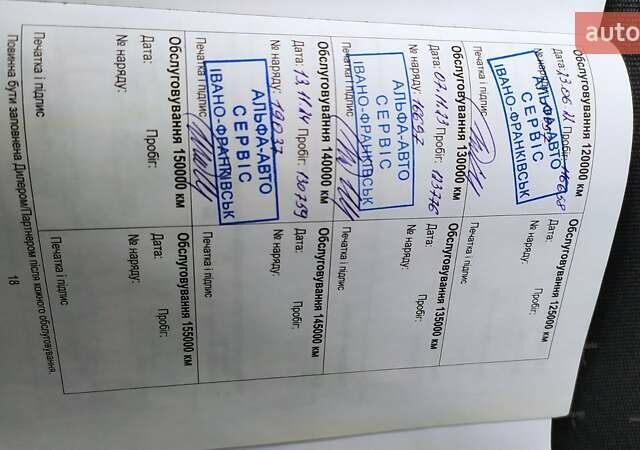 auto
Обслуговування 120000 км
Дата: 13.06 Пробіг:
№ наряду:
Печатка і підпис
АЛЬФА-АВТО
СЕРВІС
ІВАНО-ФРАНКІВСЬК
Обслуговування 125000 км
Дата: Пробіг:
№ наряду:
Печатка і підпис
Обслуговування 130000 км
Дата: 07.11.23 Пробіг: 123776
№ наряду: 16697
Печатка і підпис
АЛЬФА-АВТО
СЕРВІС
ІВАНО-ФРАНКІВСЬК
Обслуговування 135000 км
Дата: Пробіг:
№ наряду:
Печатка і підпис
Обслуговування 140000 км
Дата: 13.11.24 Пробіг: 130739
№ наряду: 19037
Печатка і підпис
АЛЬФА-АВТО
СЕРВІС
ІВАНО-ФРАНКІВСЬК
Обслуговування 145000 км
Дата: Пробіг:
№ наряду:
Печатка і підпис
Обслуговування 150000 км
Дата: Пробіг:
№ наряду:
Печатка і підпис
Обслуговування 155000 км
Дата: Пробіг:
№ наряду:
Печатка і підпис
Повинна бути заповнена Дилером/Партнером після кожного обслуговування.
18